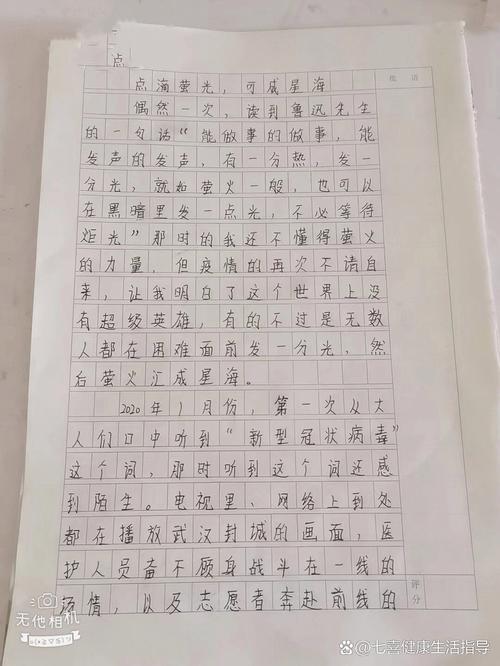 点
点滴萤光，可成星海
批语
偶然一次，读到鲁迅先生
的一句话“能做事的做事，能
发声的发声，有一分热，发一
分光，就如萤火一般，也可以
在黑暗里发一点光，不必等待
炬光”那时的我还不懂得萤火
的力量，但疫情的再次不请自
来，让我明白了这个世界上没
有超级英雄，有的不过是无数
人都在困难面前发一分光，然
后萤火汇成星海。
2020年1月份，第一次从大
人们口中听到“新型冠状病毒”
这个词，那时听到这个词还感
到陌生。电视里、网络上到处
都在播放武汉封城的画面，医
护人员奋不顾身战斗在一线的
情，以及志愿者奔赴前线的
评分
无他相机
@七喜健康生活指导